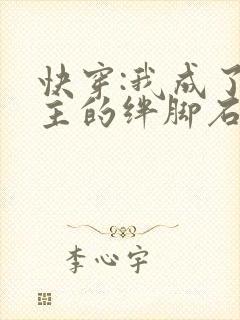 快穿:我成了
主的绊脚石
李心宇